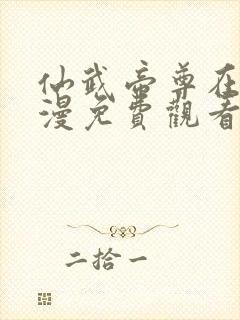 仙武帝尊在
漫免費觀看
二拾一